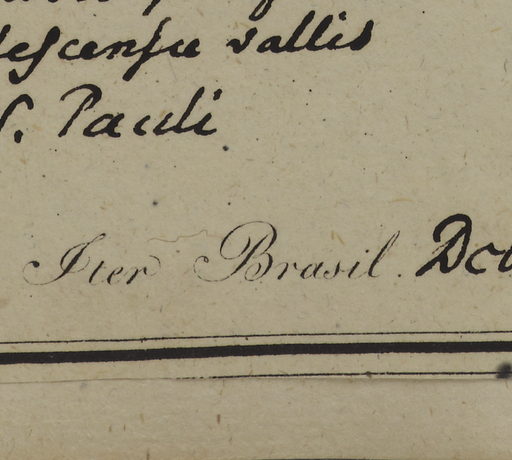 descensu vallis
S. Pauli
Iter Brasil.